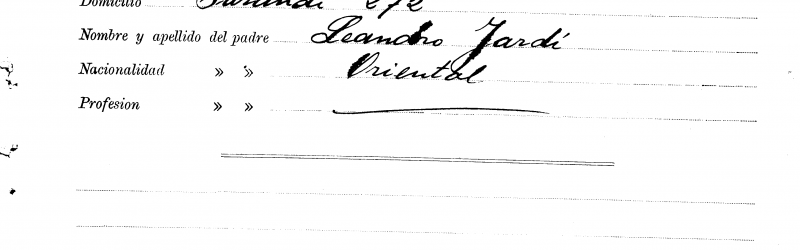 Domicilio 272
Nombre y apellido del padre Leandro Jardí
Nacionalidad » » Oriental
Profesion » »